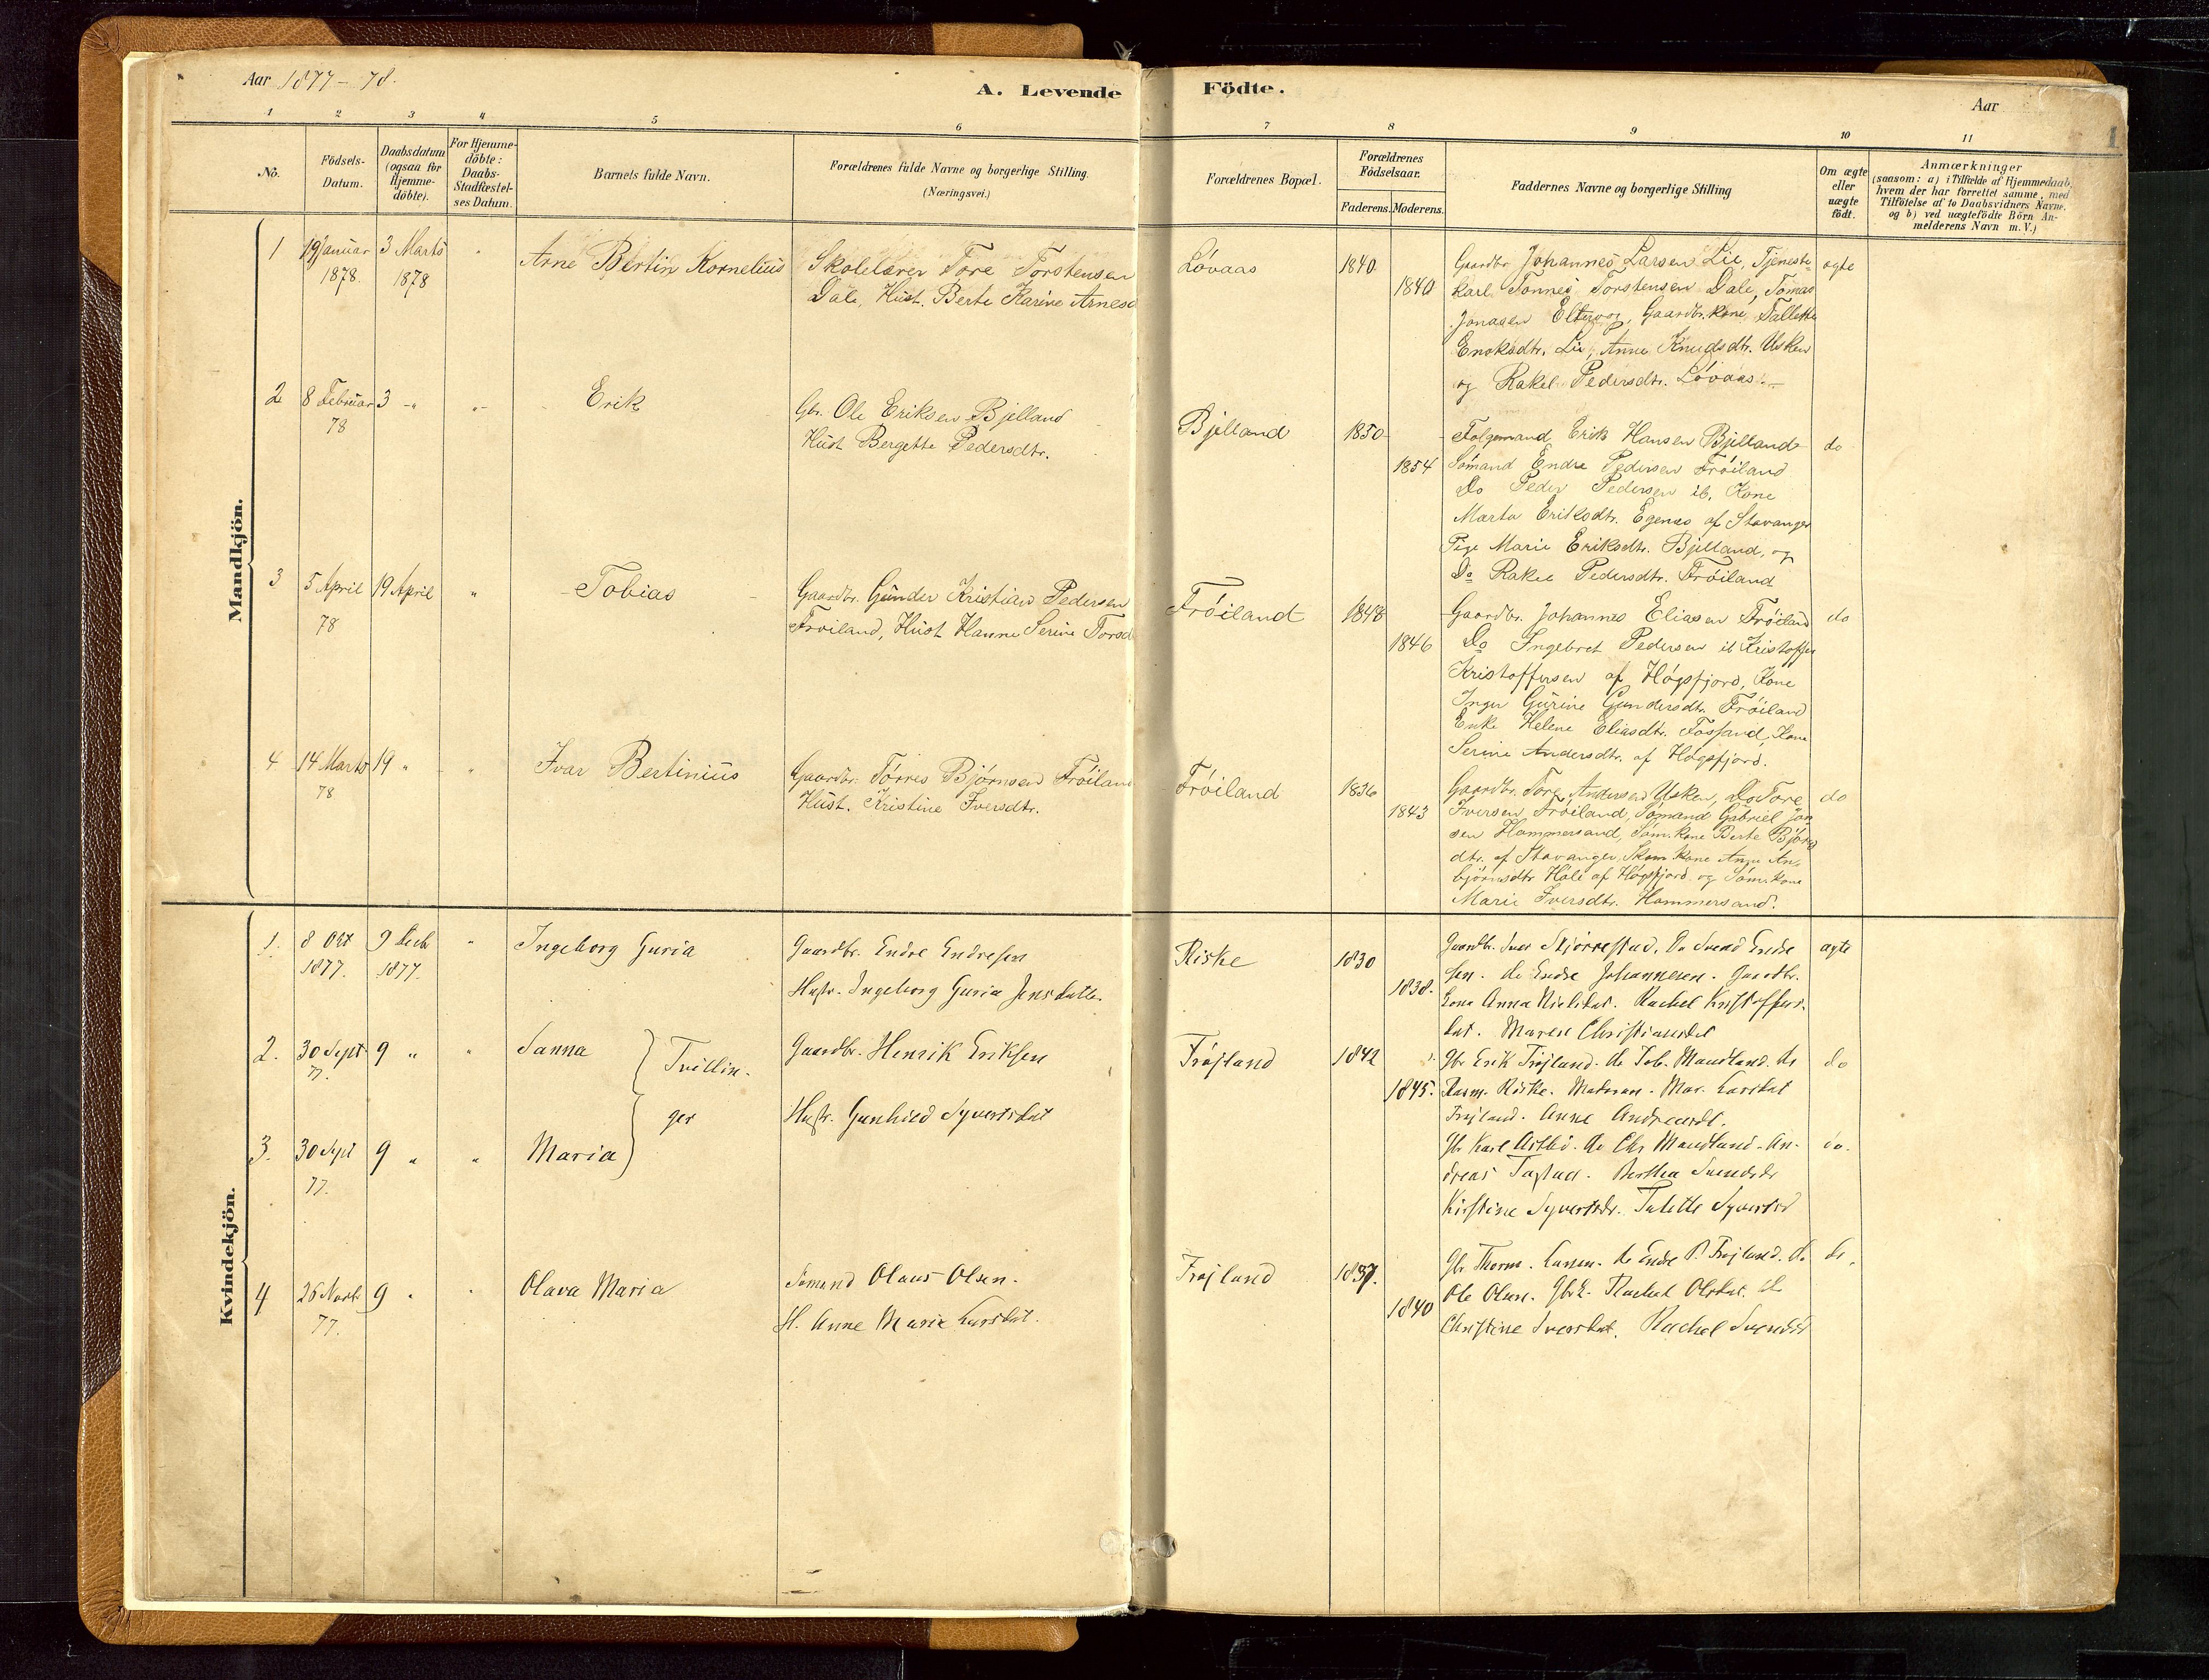 Aar 1877-78.
A. Levende
Födte.
Aar
1
1 2 3 4 5 6 7 8 9 10 11
No.
Födsels-Datum.
Daabsdatum (ogsaa for Hjemme-döbte).
For Hjemme-döbte: Daabs-Stadfæstel-ses Datum.
Barnets fulde Navn.
Forældrenes fulde Navne og borgerlige Stilling.
(Næringsvei.)
Forældrenes Bopæl.
Forældrenes Födselsaar.
Faderens. Moderens.
Faddernes Navne og borgerlige Stilling
Om ægte eller uægte födt.
Anmærkninger
(saasom: a) i Tilfælde af Hjemmedaab,
hvem der har forrettet samme, med
Tilföielse af to Daabsvidners Navne.
og b) ved uægtefödte Börn An-
melderens Navn m. V.)
Mandkjön.
1 19 Januar 1878. 3 Marts 1878 " Arne Bertin Kornelius
Skolelærer Tore Torstensen
Dale, Hust. Berte Karine Arnesd
Lóvaas 1840 1840
Gaardbr. Johannes Larsen Lie, Tjeneste-
karl Tønnes Torstensen Dale, Tomas
Jonasen Eltervog, Gaardbr. kone, Tallette
Enoksdtr. Lie, Anne Knudsdtr. Usken
og Rakel Pedersdtr. Lóvaas.
ægte
2 8 Februar 78 3 -"- "- Erik
Gbr. Ole Eriksen Bjelland
Hust Bergette Pedersdtr.
Bjelland 1850 1854
Folgemand Erik Hansen Bjelland
Sómand Endre Pedersen Fróiland
Do Peder Pedersen ib, Kone
Marta Eriksdtr. Egenes af Stavanger
Pige Marie Eriksdtr. Bjelland, og
Do Rakel Pedersdtr. Fróiland
do
3 5 April 78 19 April " Tobias
Gaardbr. Gunder Kristian Pedersen
Froiland, Hust Hanne Serine Torsd
Fróiland 1848 1846
Gaardbr. Johannes Eliasen Fróiland
Do Ingebret Pedersen ib Kristoffer
Kristoffersen af Hógsfjord, Kone
Inger Gurine Gundersdtr. Fróiland
Enke Helene Eliasdtr. Fossand, Kone
Serine Andersdtr. af Hógsfjord.
do
4 14 Marts 78 19 " " Ivar Bertinius
Gaardbr. Tórres Bjørnsen Fróiland
Hust. Kristine Iversdtr.
Fróiland 1836 1843
Gaardbr. Tore Andersen Usken, Do Tore
Iversen Fróiland, Sómand Gabriel Jon
sen Hammersand, Sóm. kone Berte Bjórns
dtr. af Stavanger, kone Anne An-
bjórnsdtr Hole af Hógsfjord og Sóm. kone
Marie Iversdtr. Hammersand.
do
Kvindekjön.
1. 8 Okt 1877. 9 Decb 1877. " Ingeborg Guria
Gaardbr. Endre Endresen
Hustr. Ingeborg Guria Jensdatter.
Riske 1830 1838.
Gaardbr. Iver Skjørrestad. Do Svend Endre
sen. do Endre Johannesen. Gaardbr.
kone Anna Nielsdat. Rachel Kristoffers
dat. Maren Christiansdat
ægte
2. 30 Sept 77. 9 " " Sanna
Tvillin-
ger
Gaardbr. Henrik Eriksen
Hustr. Gunhild Syvertsdat
Frøjland 1842 1845.
Gbr Erik Frøjland. do Tob. Maudland. do
Rasm. Riske. Mar. Larsdat
Frøjland. Anne Andreasdt.
do
3. 30 Sept 77. 9 " " Maria
Gbr Karl do Chr Maudland. An-
dreas Bertha Svendsdr
Kirstine Syvertsdr. Talette Syvertsd
do.
4 26 Novbr 77. 9 " " Olava Maria
Sømand Olaus Olsen.
H. Anne Marie Larsdat.
Frøjland 1837. 1840
Gbr Thorm. Larsen. do Endre P. Frøjland. do
Ole Olsen. Gbrk. Rachel Olsdat. do
Christine Iversdat. Rachel Svendsd
do.